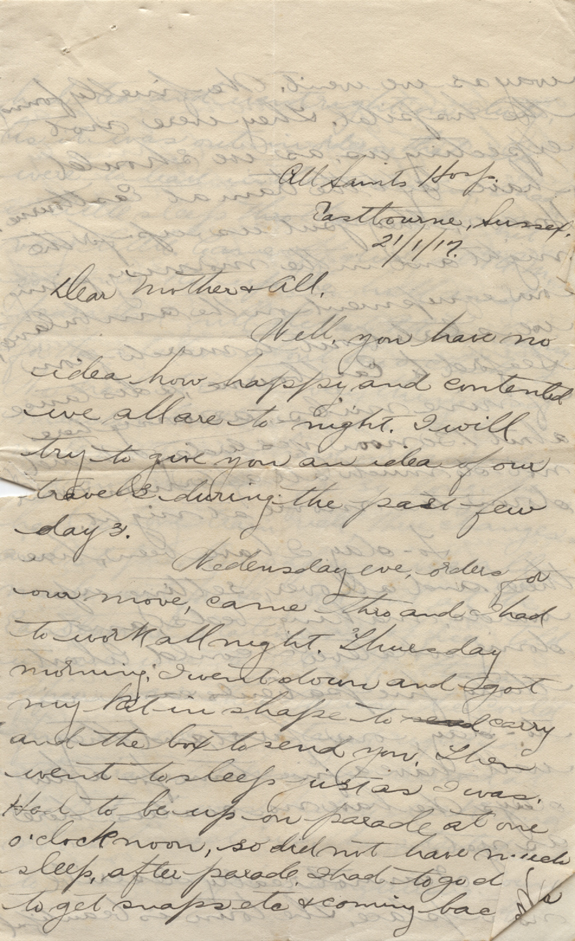 All Saints Hosp.
Eastbourne, Sussex.
21/1/17.
Dear Mother & All,
Well, you have no
idea how happy and contented
we all are to night. I will
try to give you an idea of our
travels during the past few
days.
Wedensday eve, orders for
our move, came thro and I had
to work all night. Thuesday
morning, I went down and got
my kit in shape to carry
and the box to send you. Then
went to sleep just as I was.
Had to be up on parade at one
o'clock noon, so did not have much
sleep, after parade I had to go
to get snaps etc & coming bac